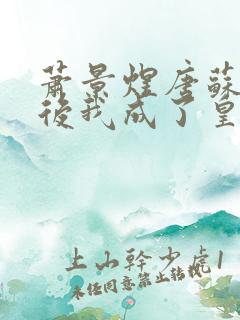 蕭景煌唐蘇
後我成了皇
上山幹少處1
未經同意禁止轉載